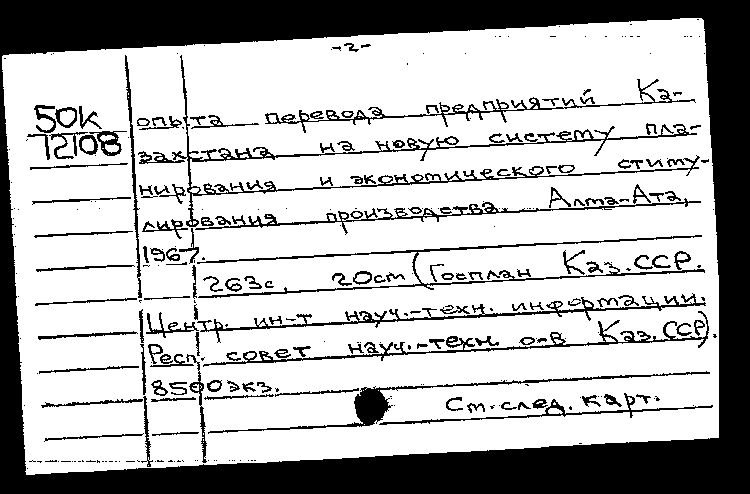 -2-
50к
12108
опыта перевода предприятий Ка-
захстана на новую систему пла-
нирования и экономического стиму-
лирования производства. Алма-Ата,
1967.
263с. 20см (Госплан Каз.ССР.
Центр. ин-т науч.-техн. информации.
Респ. совет науч.-техн. о-в Каз.ССР).
8500экз.
См.след.карт.